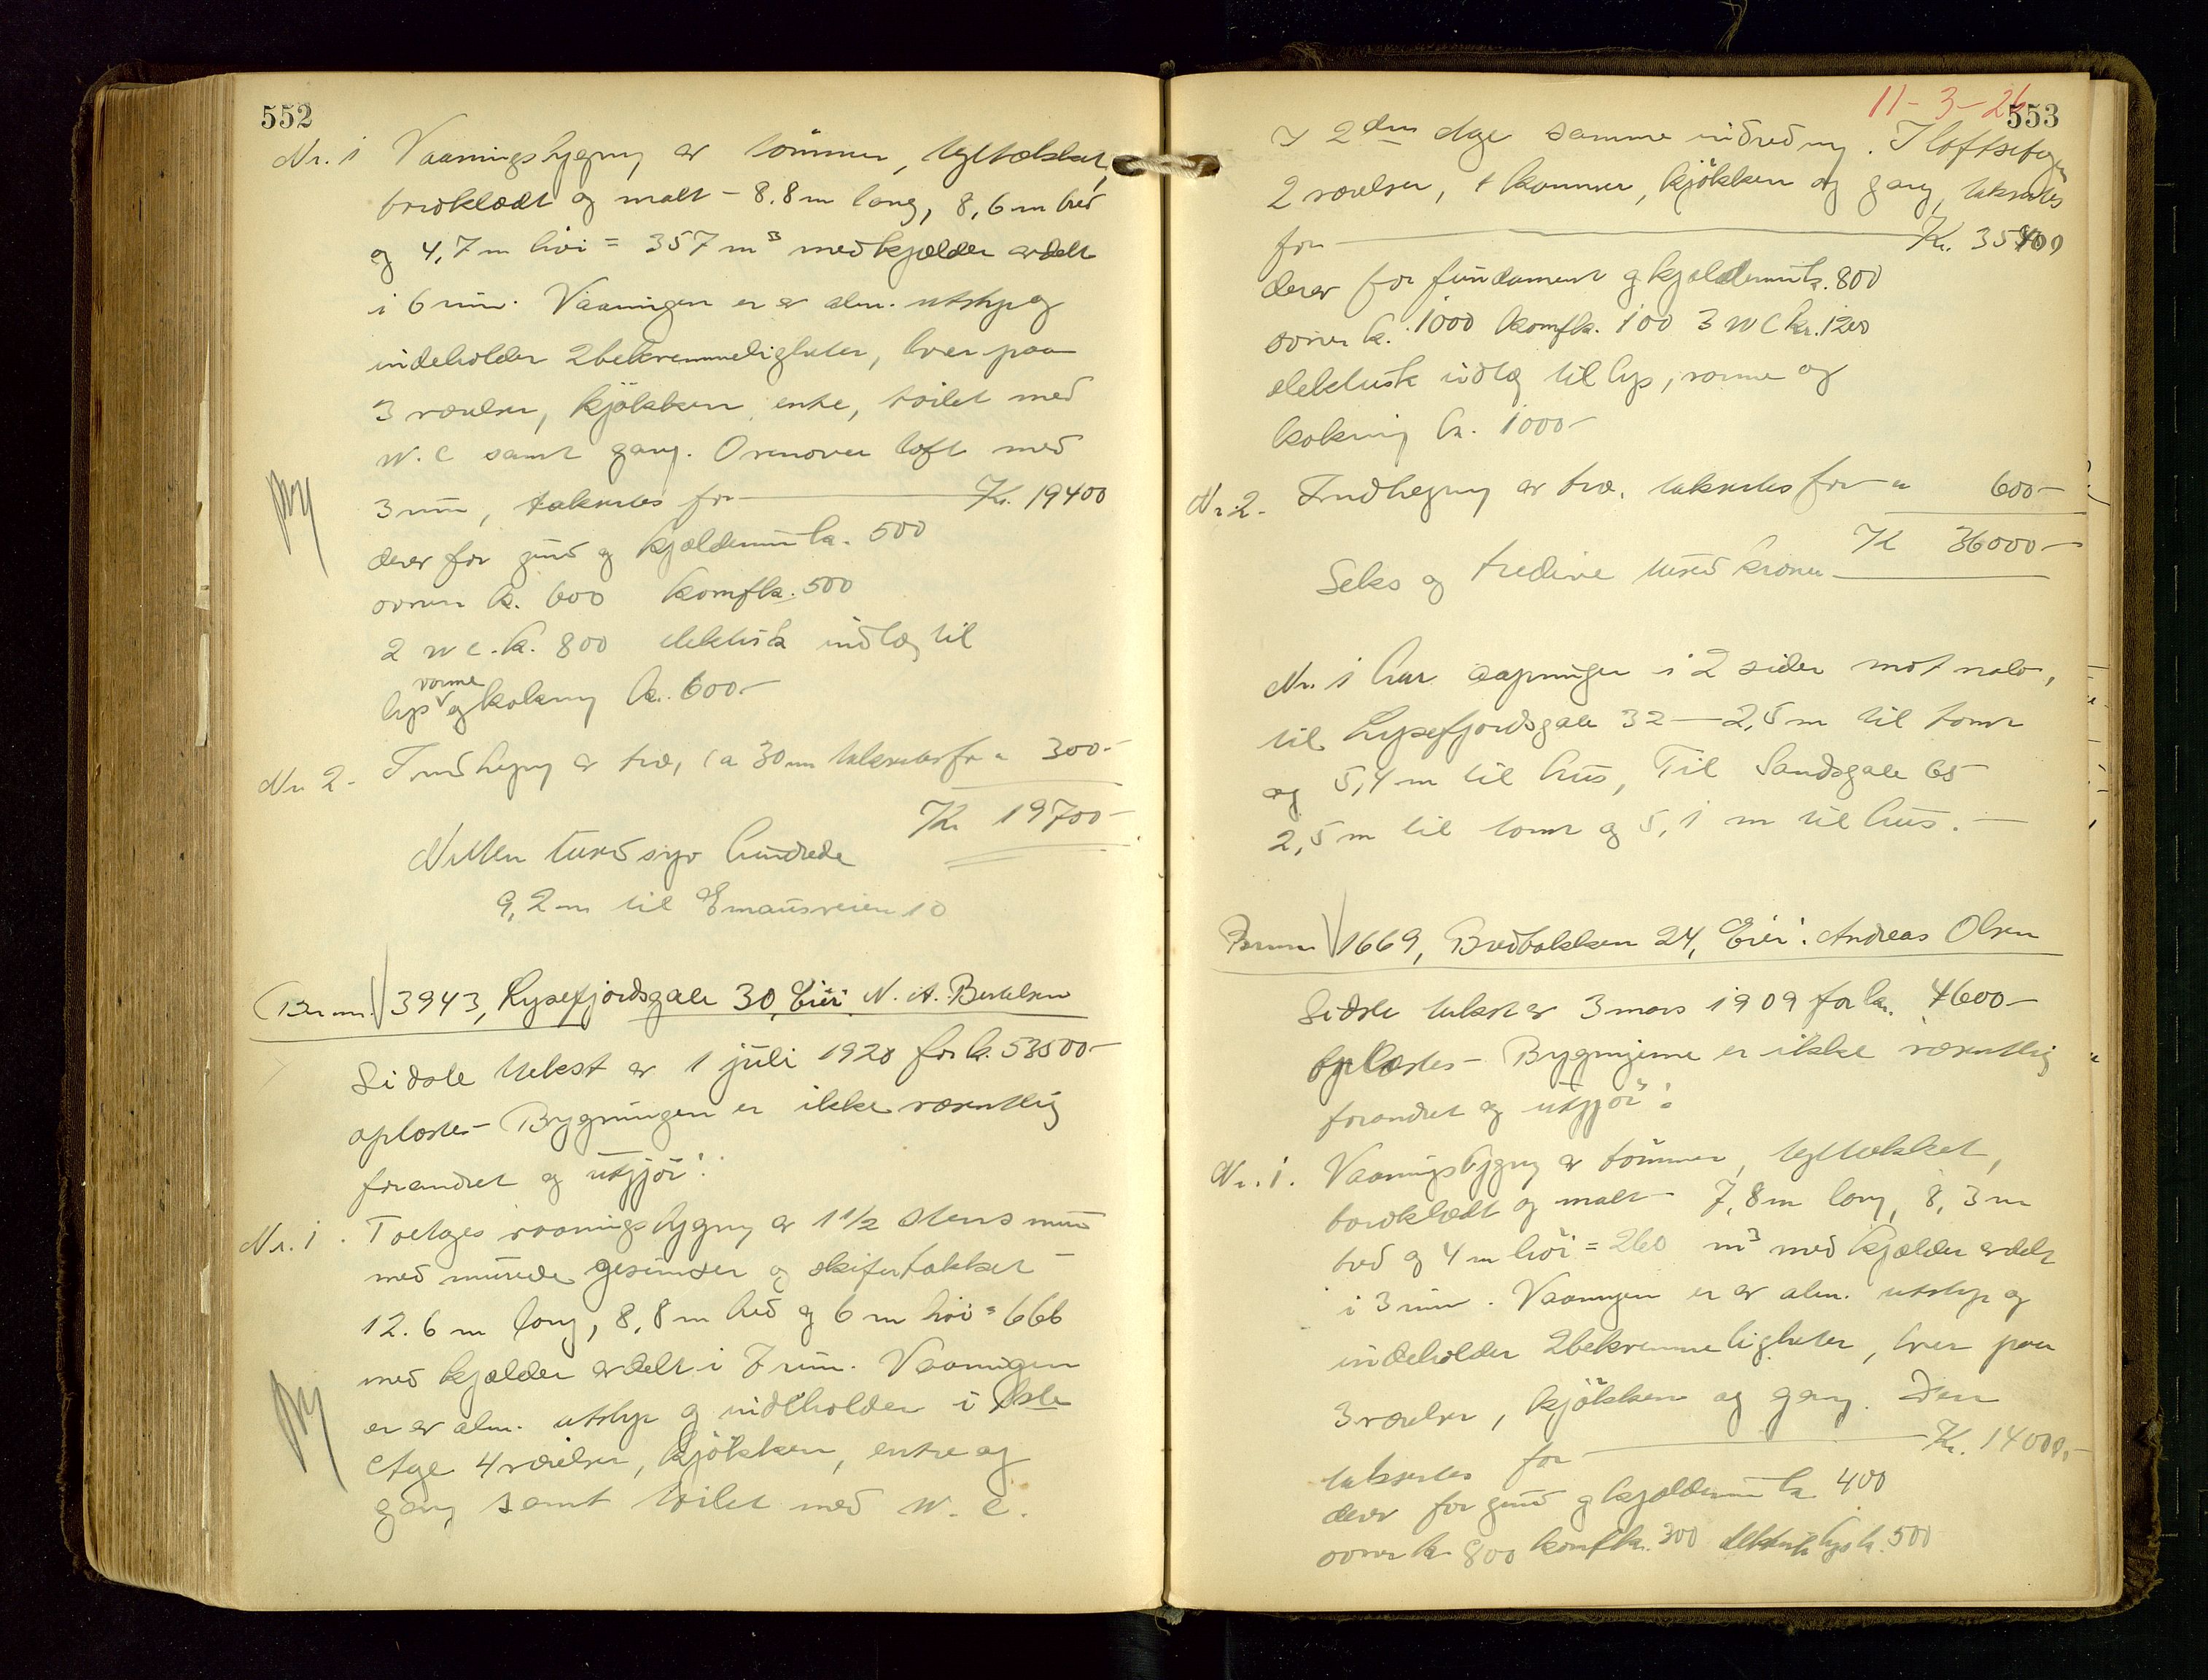 552
Nr. 1 Vaaningsbygning av tömmer, tegltækket,
bordklædt og malt - 8.8 m lang, 8,6 m bred
og 4,7 m höi = 357 m³ med kjælder avdelt
i 6 rum. Vaaningen er av alm. utstyr og
indeholder 2 bekvemmeligheter, hver paa
3 værelser, kjökken entre, toilet med
W.C samt gang. Ovenover loft med
3 rum, takseres for Kr. 19400
derav for grund og kjælderrum kr. 500
ovner kr. 600 komf kr. 500
2 W C. kr. 800 elektrisk indlæg til
varme
lys og kokning kr. 600-
Nr 2- Indhegning av træ, ca 30 m takseres for " 300-
Kr 19700-
Nitten tusend syv hundrede
9,2 m til Emausveien 10
Br nr. 3943, Lysefjordsgate 30, Eier N. A. Bertelsen
Sidste takst av 1 juli 1920 for kr. 53500-
oplæstes - Bygningen er ikke væsentlig
forandret og utgjör:
Nr. 1. Toetages vaaningsbygning av 1 1/2 stens mur
med murede gesimser og skifertækket -
12.6 m lang, 8,8 m bred og 6 m höi = 666
med kjælder avdelt i 7 rum. Vaaningen
er av alm. utstyr og indeholder i 1ste
etage 4 værelser, kjökken, entre og
gang samt toilet med W. C.
11-3-26
553
I 2den etage samme indredning. I loftsetagen
2 værelser, 1 kammer, kjökken og gang, takseres
for Kr. 35400
derav for fundament og kjælderrum kr. 800
ovner kr. 1000 komf kr. 100 3 W C kr. 1200
elektrisk indlæg til lys, varme og
kokning kr. 1000-
Nr. 2- Indhegning av træ, takseres for " 600-
Kr 36000-
Seks og tredive tusend kroner
Nr. 1 har aapninger i 2 sider mot nabo,
til Lysefjordsgate 32 - 2,5 m til tomt
og 5,4 m til hus, Til Sandsgate 65
2,5 m til tomt og 5,1 m til hus. -
Brnr 1669, Bredbakken 24, Eier: Andreas Olsen
Sidste takst av 3 mars 1909 for kr. 4600-
oplæstes - Bygningerne er ikke væsentlig
forandret og utgjör:
Nr. 1. Vaaningsbygning av tömmer, tegltækket,
bordklædt og malt - 7,8 m lang, 8,3 m
bred og 4 m höi = 260 m³ med kjælder avdelt
i 3 rum. Vaaningen er av alm. utstyr og
indeholder 2 bekvemmeligheter, hver paa
3 værelser, kjökken og gang. Den
takseres for Kr. 14000.-
derav for grund og kjælderrum kr 400
ovner kr 800 komf kr. 300 elektrisk lys kr. 500